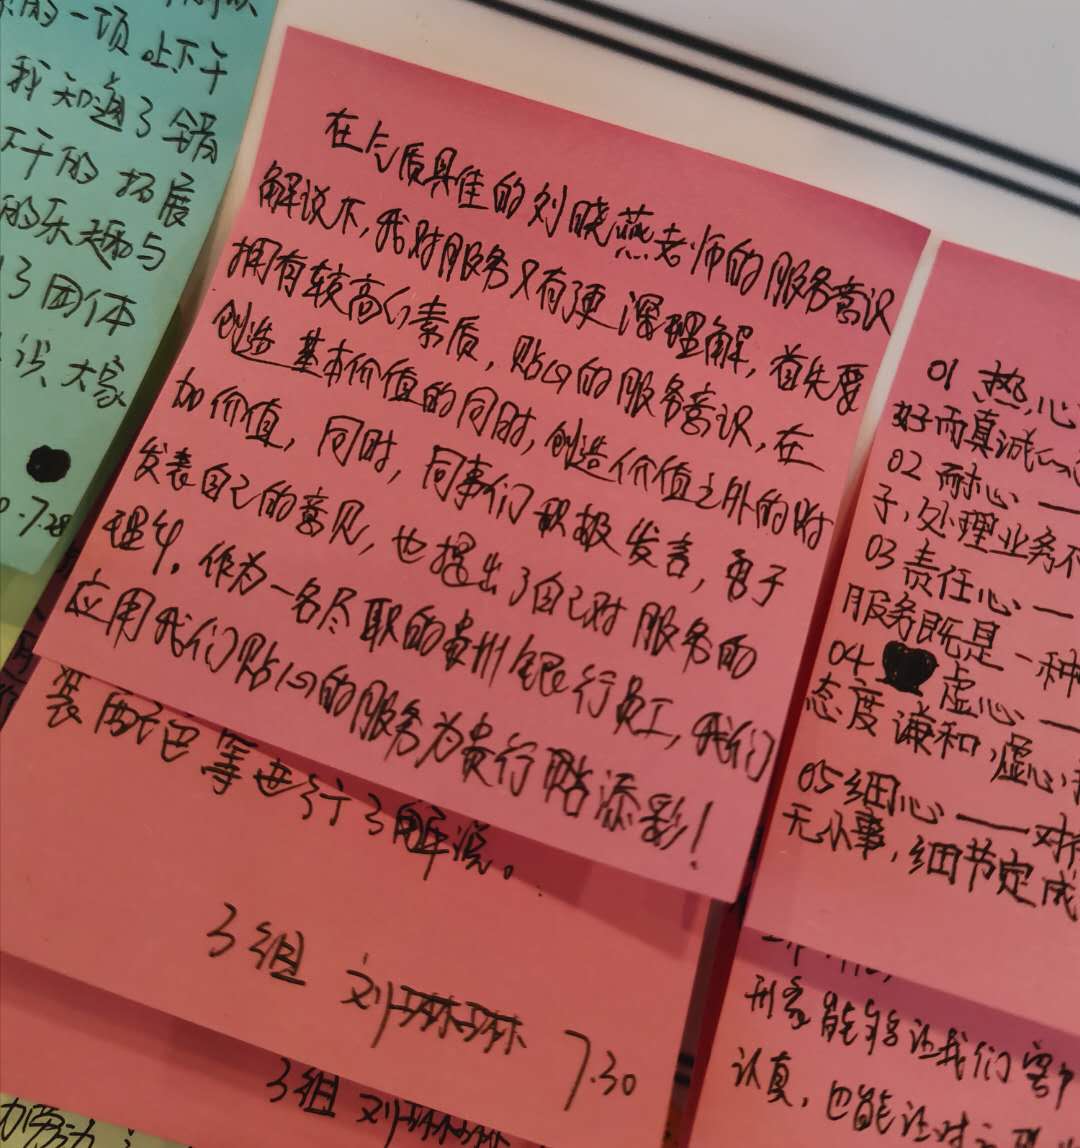 的一项
上下午
我知道了锅
不干的拓展
的乐趣与
了团体
识大家
在气质具佳的刘晓燕老师的服务意识
解说下,我对服务又有了更深理解,首先要
拥有较高的素质,贴心的服务意识,在
创造基本价值的同时,创造价值之外的附
加价值,同时,同事们积极发言,勇于
发表自己的意见,也提出了自己对服务的
理解。作为一名尽职的贵州银行员工,我们
应用我们贴心的服务为贵行略添彩!
装配色等进行了解说。
3组 刘琳琳 7.30
3组 刘琳琳
01 热心
好而真诚的态
02 耐心——
子,处理业务不
03 责任心——
服务既是一种
04 虚心——
态度谦和,虚心
05 细心——对待
无小事,细节定成
能够让我们客户
认真,也能让